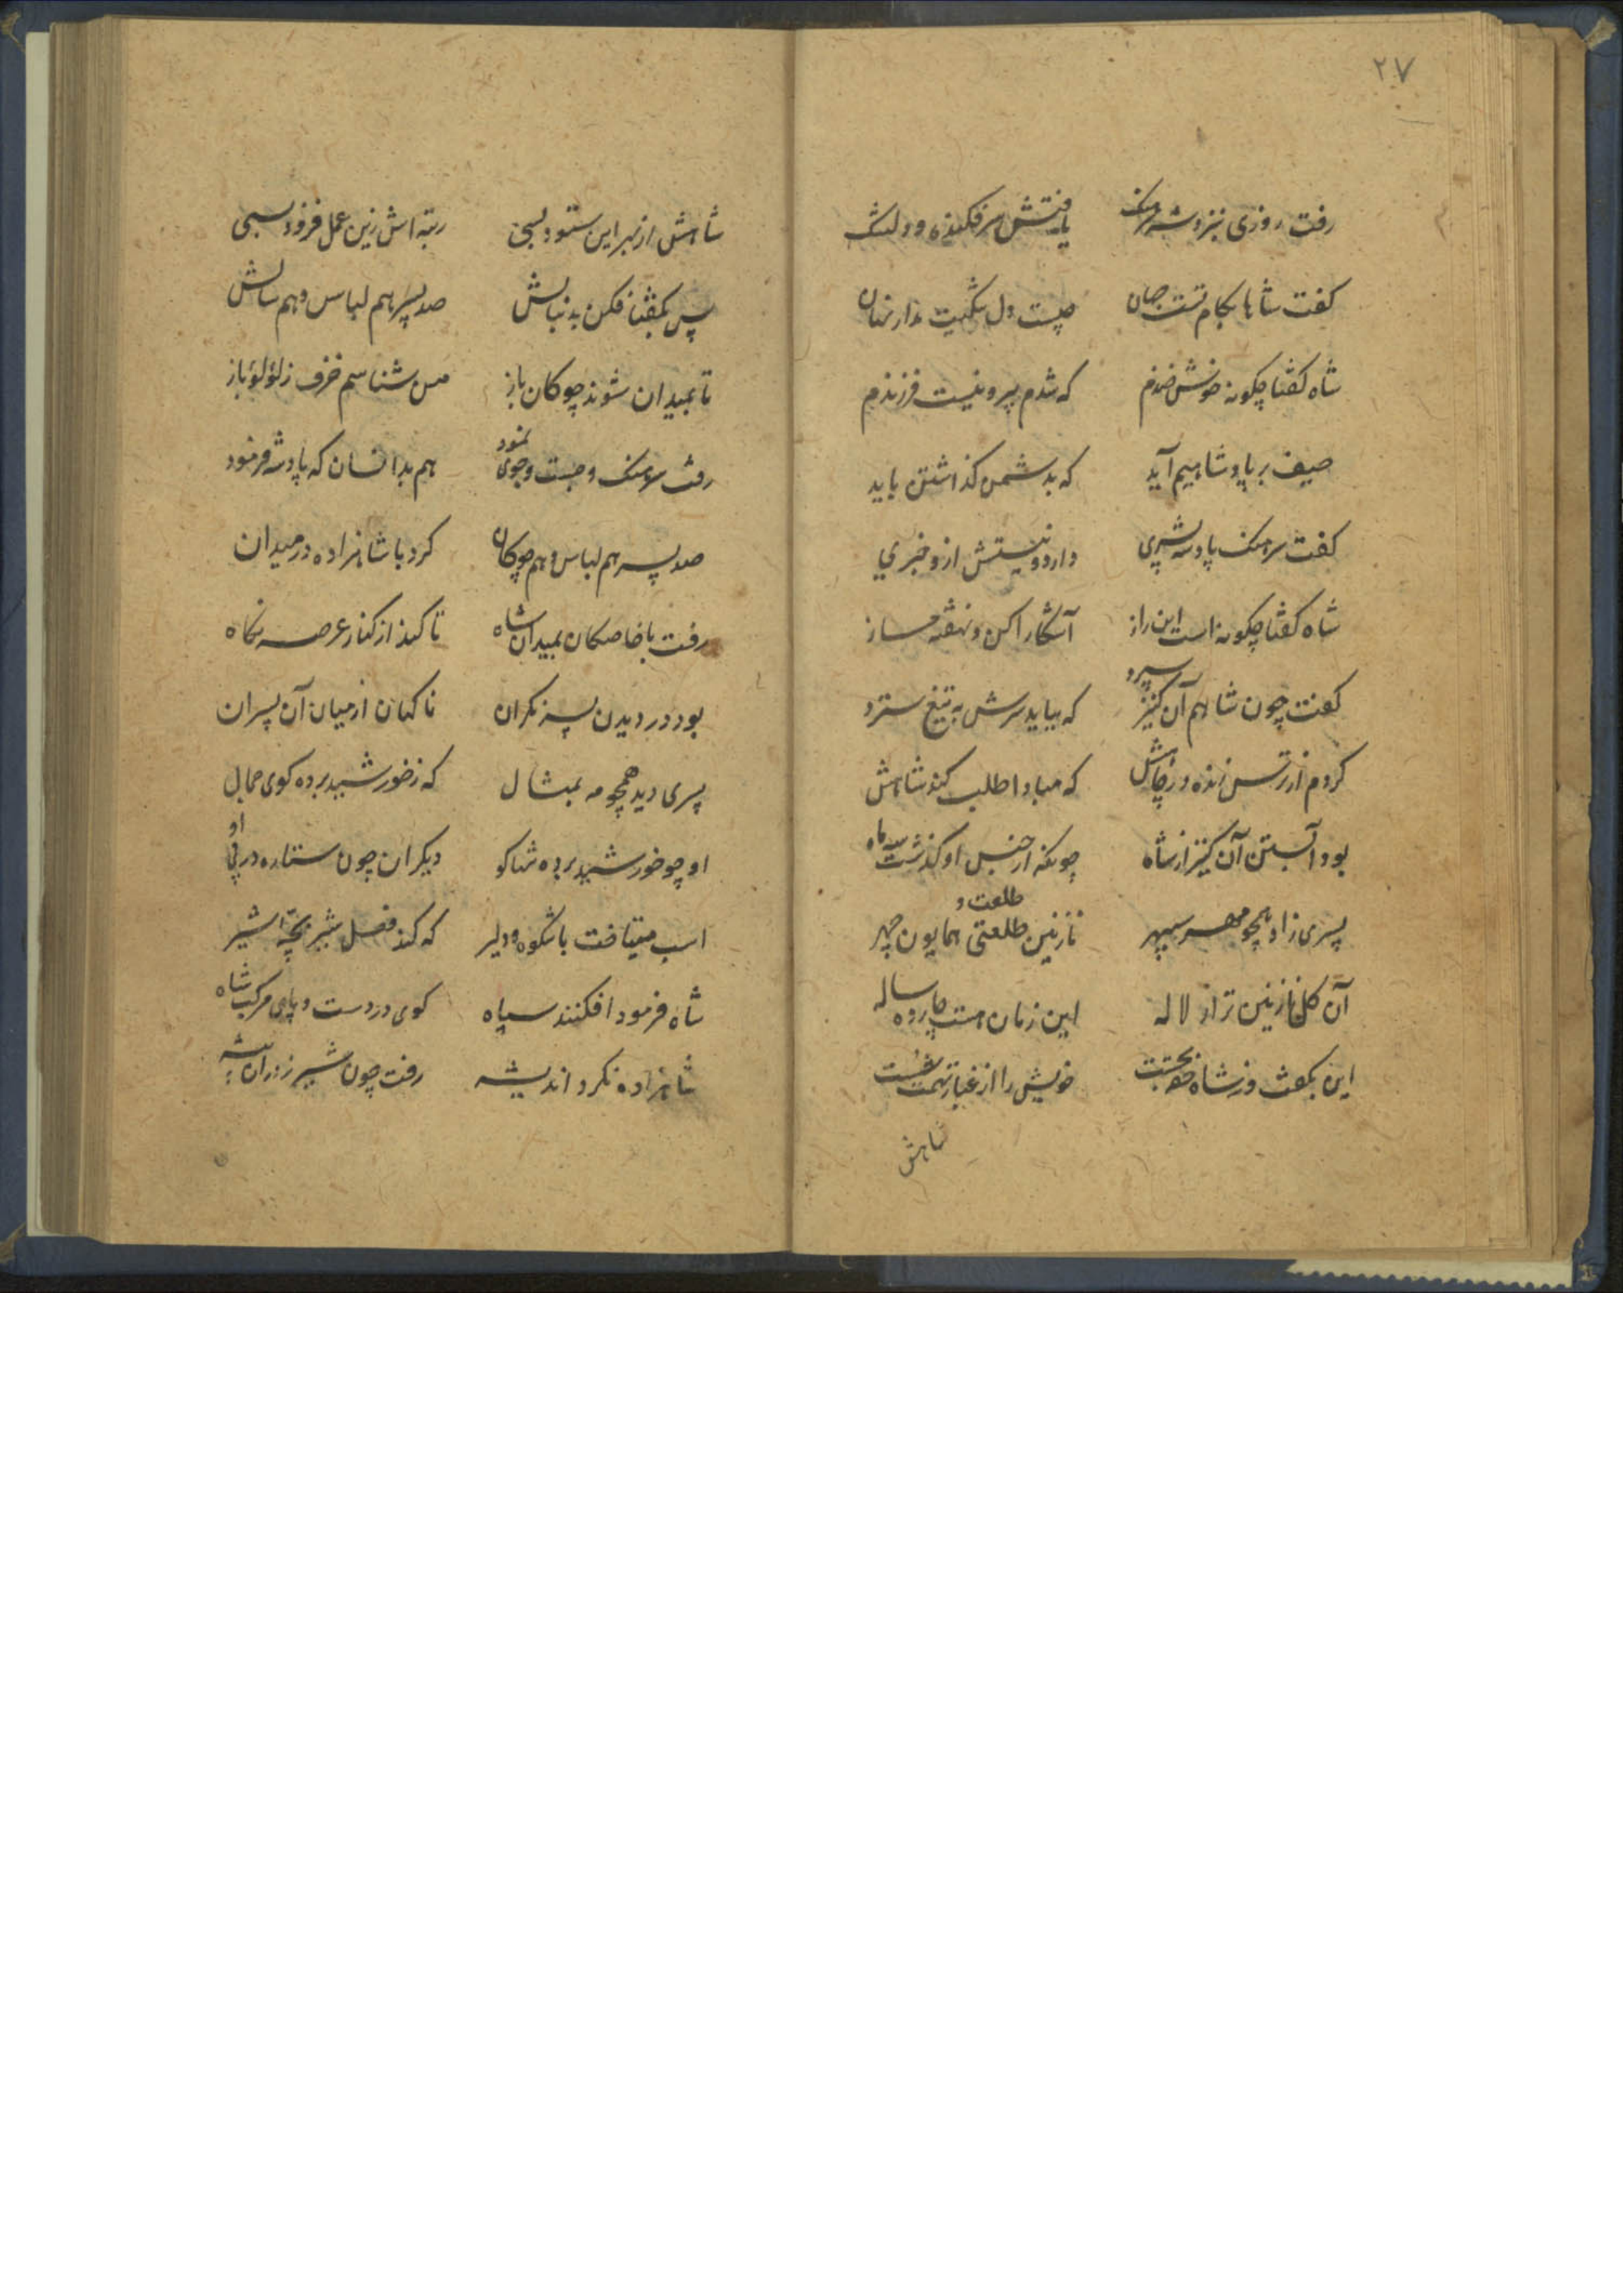 ۲۷
رفت روزی بنزد شه سرهنک یافتش سر فکنده و دلتنک
کفت شاها بکام تست جهان چیست دل تنکیت مدار نهان
شاه کفتا چکونه خوش خندم که شدم پیر و نیست فرزندم
حیف بر پادشاهیم آید که بدشمن کذاشتن باید
کفت سرهنک پادشه پسری دارد و نیستش ازو خبری
شاه کفتا چکونه است این راز آشکارا کن و نهفته مساز
کفت چون شاهم آن کنیز سپرد که بیاید سرش به تیغ سترد
کردم از ترس زنده در چاهش که مبادا طلب کند شاهش
بود آبستن آن کنیز از شاه چونکه از حبس او کذشت سه ماه
پسری زاد همچو مهر سپهر نازنین طلعتی همایون چهر
طلعت و
آن کل نازنین تر از لاله این زمان هست چارده ساله
این بکفت و ز شاه حجت جست خویش را از غبار تهمت شست
شاهش
شاهش از بهر این ستود بسی رتبه اش زین عمل فزود بسی
پس بکفتا فکن بدنبالش صد پسر هم لباس و هم سالش
تا بمیدان شوند چوکان باز من شناسم خزف ز لؤلؤ باز
رفت سرهنک و جست و جوی نمود هم بدانسان که پادشه فرمود
صد پسر هم لباس و هم چوکان کرد با شاهزاده در میدان
رفت با خاصکان بمیدان شاه تا کند از کنار عرصه نکاه
بود در دیدن پسر نکران ناکهان از میان آن پسران
پسری دید همچو مه بمثال که ز خورشید برده کوی جمال
او چو خورشید برده شاکو دیکران چون ستاره در پی او
اسب میتافت باشکوه و دلیر که کند فصل شیر بچهٔ شیر
شاه فرمود افکنند سپاه کوی در دست و پای مرکب شاه
شاهزاده نکرد اندیشه رفت چون شیر نر در آن بیشه